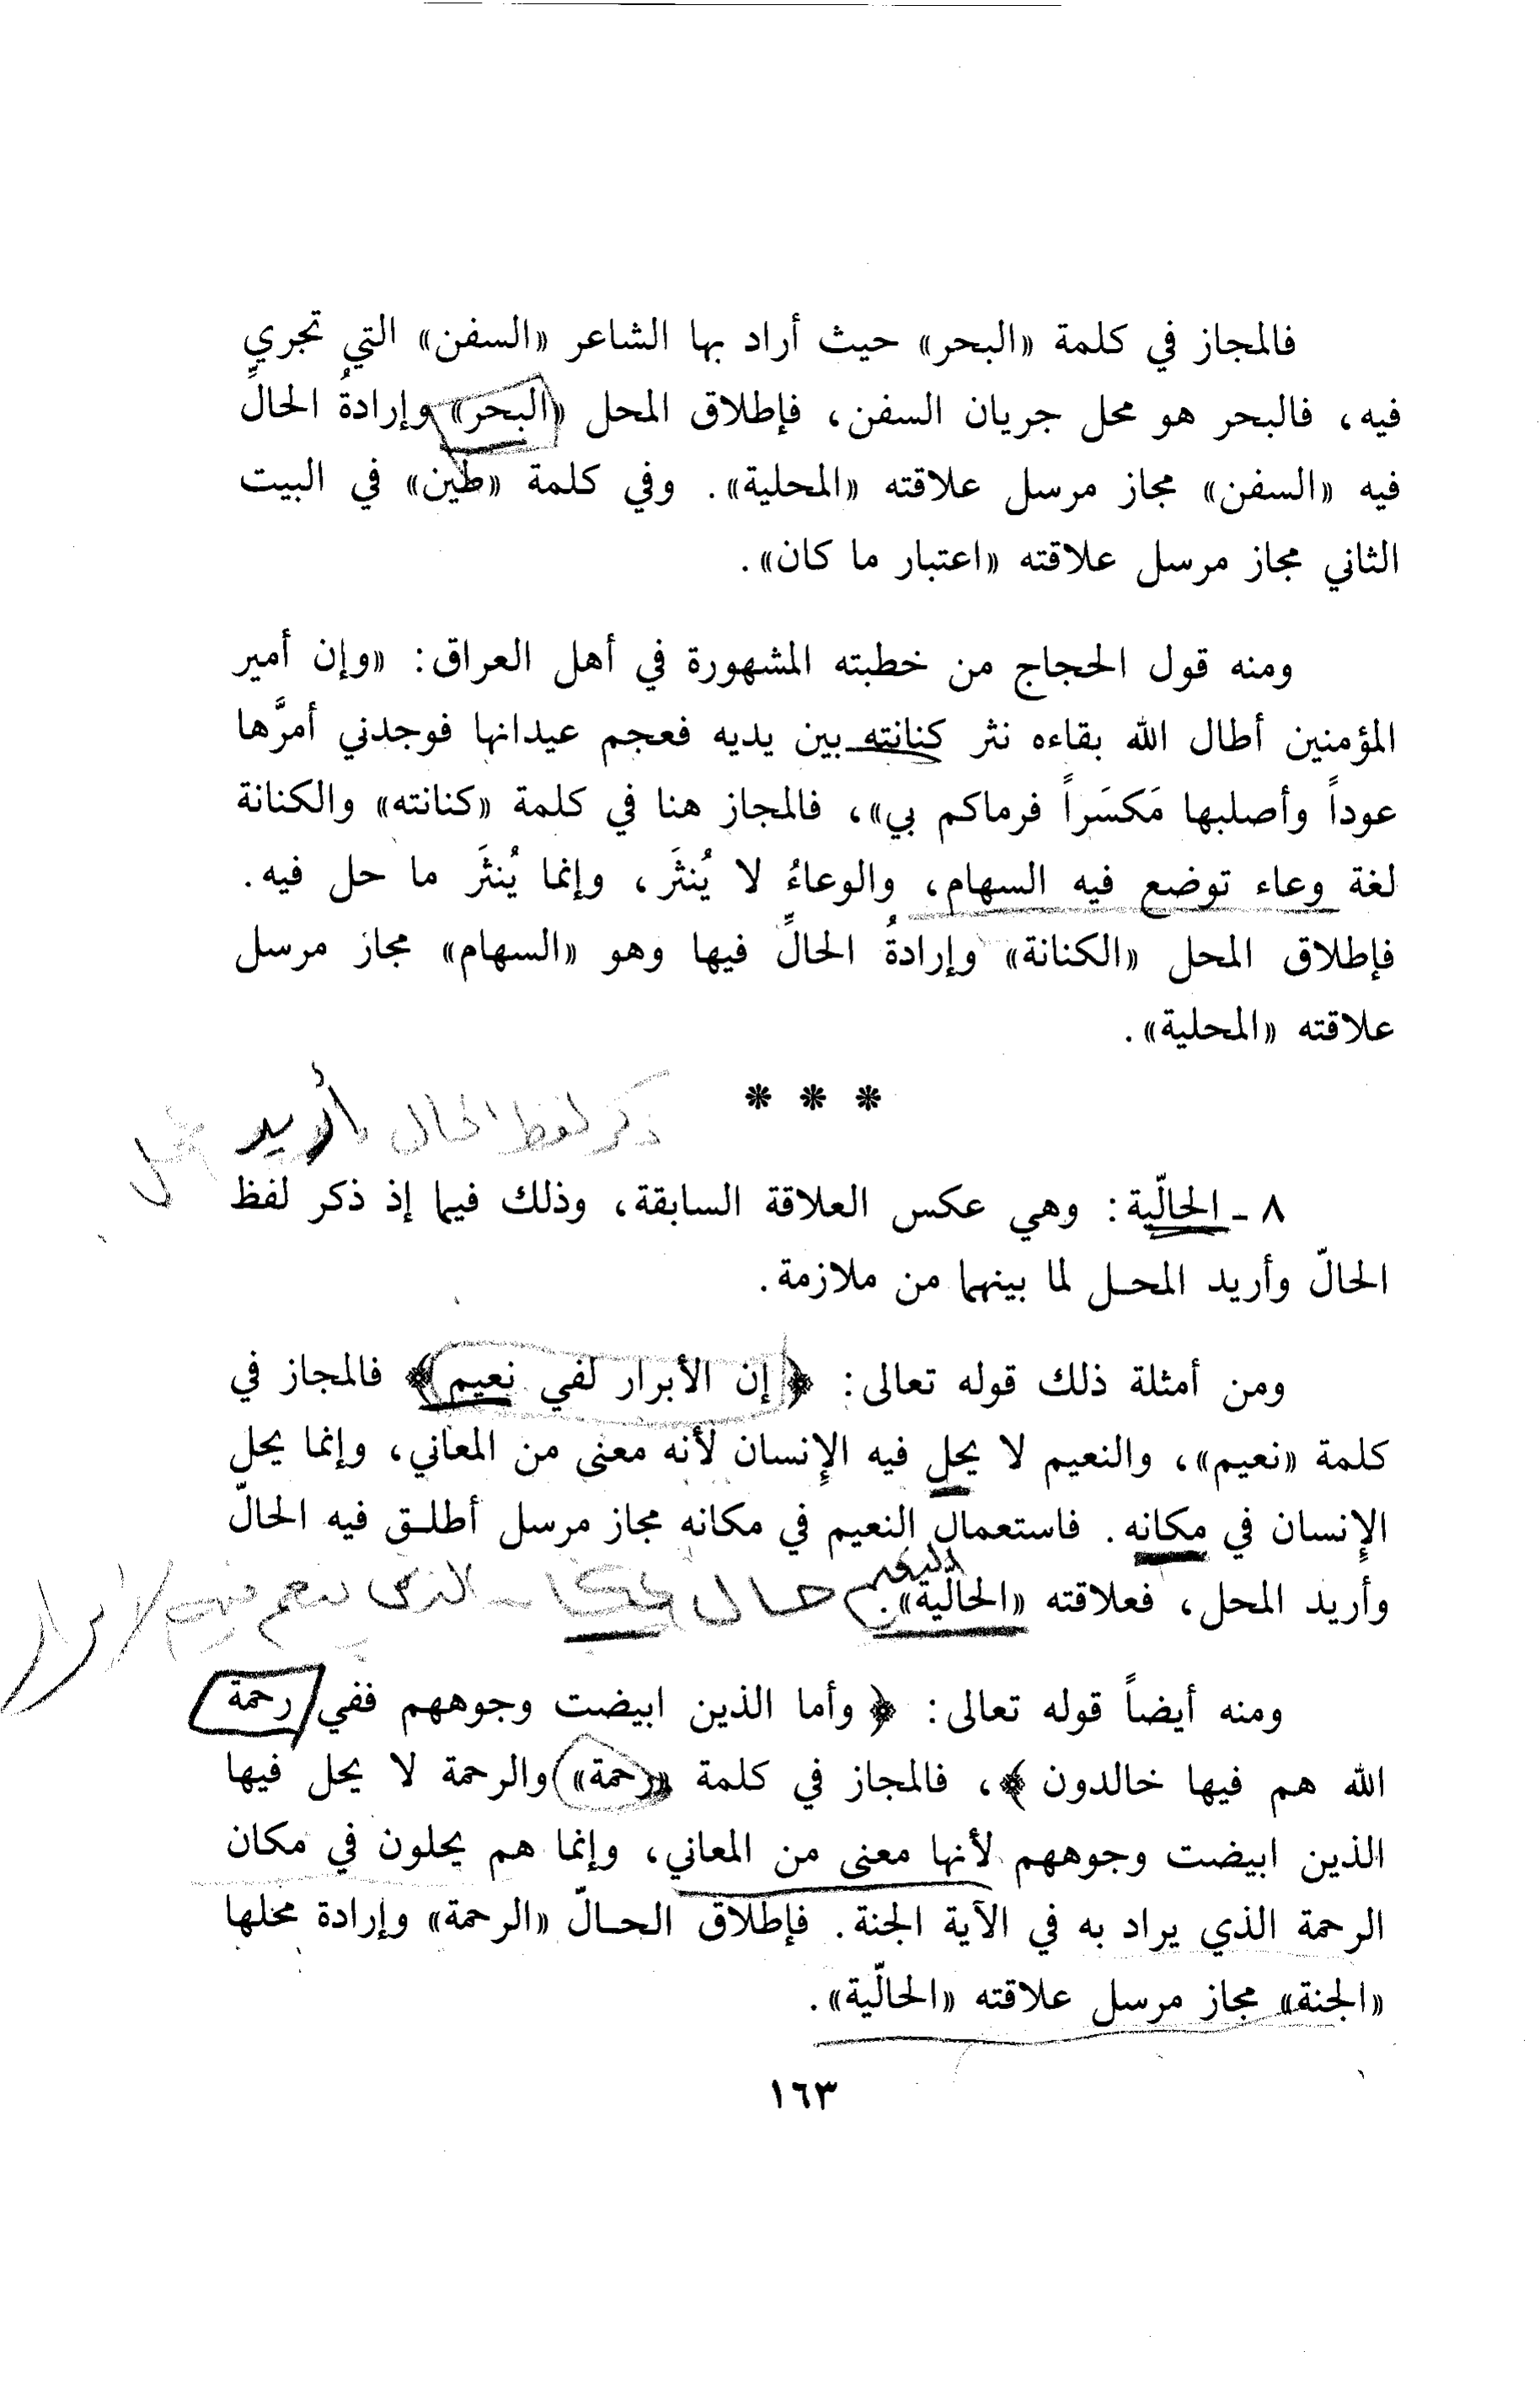 فالمجاز في كلمة «البحر» حيث أراد بها الشاعر «السفن» التي تجري
فيه، فالبحر هو محل جريان السفن، فإطلاق المحل «البحر» وإرادةُ الحالِّ
فيه «السفن» مجاز مرسل علاقته «المحلية». وفي كلمة «طين» في البيت
الثاني مجاز مرسل علاقته «اعتبار ما كان».
ومنه قول الحجاج من خطبته المشهورة في أهل العراق: «وإن أمير
المؤمنين أطال الله بقاءه نثر كنانته بين يديه فعجم عيدانها فوجدني أمرَّها
عوداً وأصلبها مَكسَراً فرماكم بي»، فالمجاز هنا في كلمة «كنانته» والكنانة
لغة وعاء توضع فيه السهام، والوعاءُ لا يُنثَر، وإنما يُنثَر ما حل فيه.
فإطلاق المحل «الكنانة» وإرادةُ الحالِّ فيها وهو «السهام» مجاز مرسل
علاقته «المحلية».
* * *
ذكر لفظ الحال وأريد
٨ ـ الحالّية: وهي عكس العلاقة السابقة، وذلك فيما إذ ذكر لفظ
الحالّ وأريد المحل لما بينهما من ملازمة.
ومن أمثلة ذلك قوله تعالى: ﴿إن الأبرار لفي نعيم﴾ فالمجاز في
كلمة «نعيم»، والنعيم لا يحل فيه الإنسان لأنه معنى من المعاني، وإنما يحل
الإنسان في مكانه. فاستعمال النعيم في مكانه مجاز مرسل أطلق فيه الحالّ
وأريد المحل، فعلاقته «الحالّية».
النعيم حال الذي ينعم فيه الأبرار
ومنه أيضاً قوله تعالى: ﴿وأما الذين ابيضت وجوههم ففي رحمة
الله هم فيها خالدون﴾، فالمجاز في كلمة «رحمة» والرحمة لا يحل فيها
الذين ابيضت وجوههم لأنها معنى من المعاني، وإنما هم يحلون في مكان
الرحمة الذي يراد به في الآية الجنة. فإطلاق الحالّ «الرحمة» وإرادة محلها
«الجنة» مجاز مرسل علاقته «الحالّية».
١٦٣